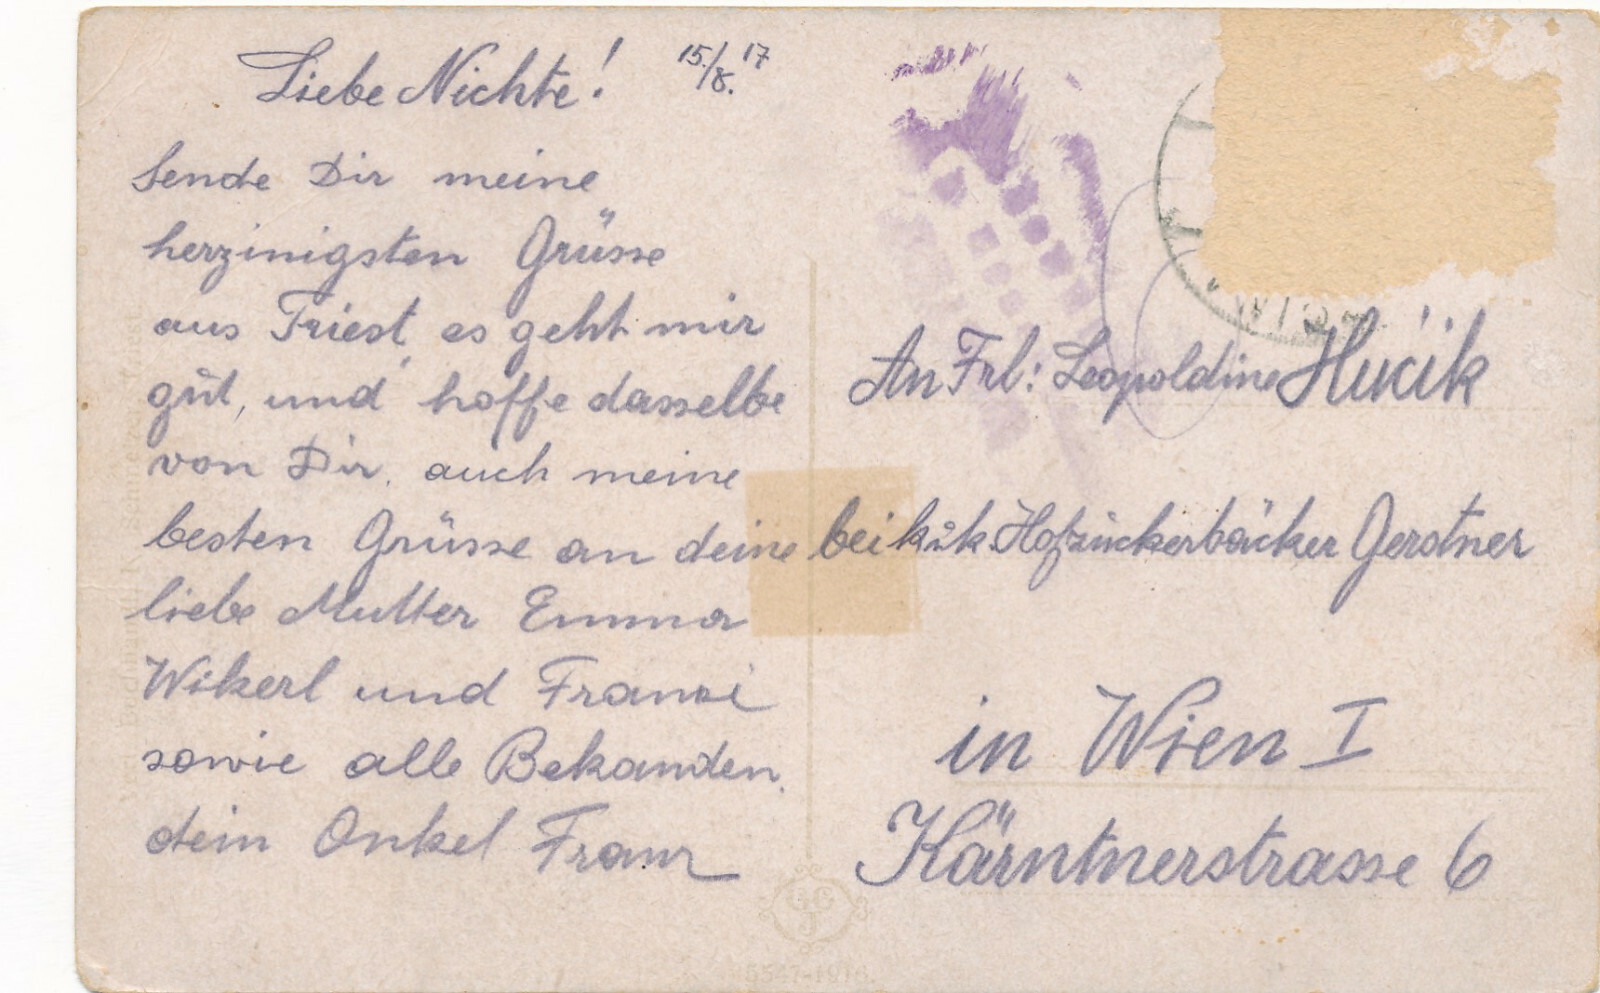 Liebe Nichte! 15./8. 17
Sende Dir meine
herzinigsten Grüsse
aus Triest, es geht mir
gut, und hoffe dasselbe
von Dir, auch meine
besten Grüsse an deine
liebe Mutter Emma
Wikerl und Franzi
sowie alle Bekanden.
dein Onkel Franz
An Frl: Leopoldine
bei k.u.k. Hofzuckerbäcker Gerstner
in Wien I
Kärntnerstrasse 6
5547-1916.